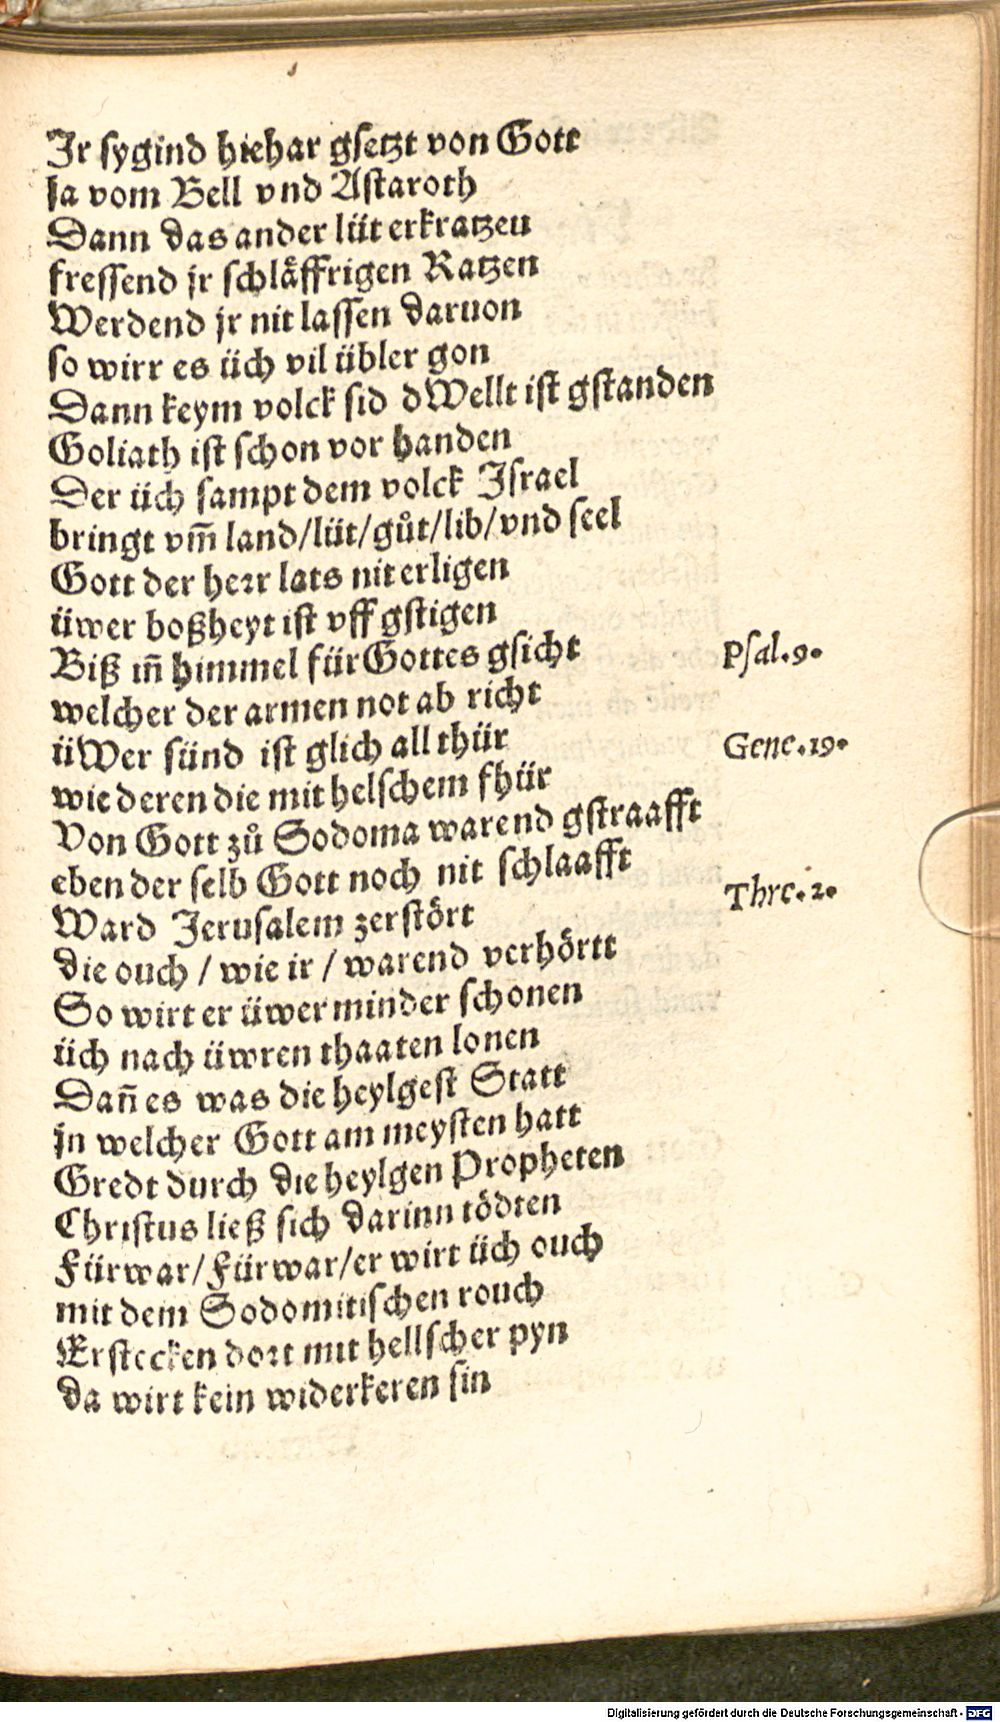 Jr sygind hiehar gsetzt von Gott
ja vom Bell vnd Astaroth
Dann das ander lüt erkratzen
fressend jr schlåffrigen Ratzen
Werdend jr nit lassen daruon
so wirr es üch vil übler gon
Dann keym volck sid dWellt ist gstanden
Goliath ist schon vor handen
Der üch sampt dem volck Israel
bringt vm̃ land/lüt/gůt/lib/vnd seel
Gott der herr lats nit erligen
üwer boßheyt ist vff gstigen
Biß iñ himmel für Gottes gsicht
Psal.9.
welcher der armen not ab richt
üWer sünd ist glich all thür
Gene.19.
wie deren die mit helschem fhür
Von Gott zů Sodoma warend gstraafft
eben der selb Gott noch nit schlaafft
Thre.2.
Ward Jerusalem zerstört
die ouch / wie ir / warend verhörtt
So wirt er üwer minder schonen
üch nach üwren thaaten lonen
Dañ es was die heylgest Statt
jn welcher Gott am meysten hatt
Gredt durch die heylgen Propheten
Christus ließ sich darinn tödten
Fürwar/Fürwar/er wirt üch ouch
mit dem Sodomitischen rouch
Erstecken dort mit hellscher pyn
da wirt kein widerkeren sin
Digitalisierung gefördert durch die Deutsche Forschungsgemeinschaft - DFG